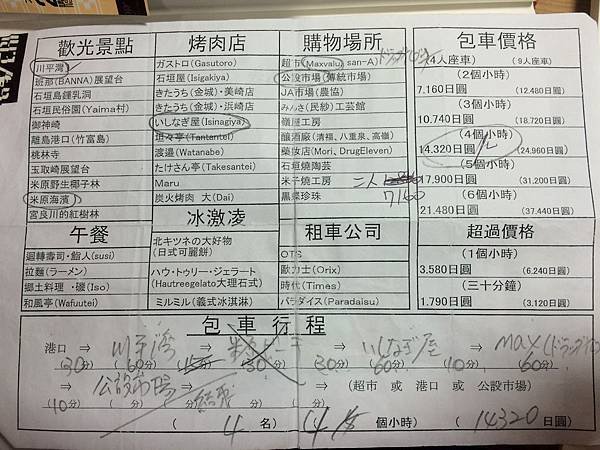 歡光景點
川平灣
班那(BANNA)展望台
石垣島鍾乳洞
石垣民俗園(Yaima村)
御神崎
離島港口(竹富島)
桃林寺
玉取崎展望台
米原野生椰子林
米原海濱
宮良川的紅樹林
烤肉店
ガストロ(Gasutoro)
石垣屋(Isigakiya)
きたうち(金城)・美崎店
きたうち(金城)・浜崎店
いしなぎ屋(Isinagiya)
担々亭(Tantentei)
渡邉(Watanabe)
たけさん亭(Takesantei)
Maru
炭火烤肉 大(Dai)
購物場所
超市(Maxvalu, san-A)
公設市場(傳統市場)
JA市場(農協)
みんさ(民紗)工芸館
嶺屋工房
釀酒廠(清福、八重泉、高嶺)
藥妝店(Mori、DrugEleven)
石垣燒陶芸
米子燒工房
黑蝶珍珠
二人
7160
包車價格
(4人座車) (9人座車)
(2個小時)
7.160日圓 (12.480日圓)
(3個小時)
10.740日圓 (18.720日圓)
(4個小時)
14.320日圓 (24.960日圓)
(5個小時)
17.900日圓 (31.200日圓)
(6個小時)
21.480日圓 (37.440日圓)
午餐
迴轉壽司・鮨人(susi)
拉麵(ラーメン)
鄉土料理 ・磯(Iso)
和風亭(Wafuutei)
冰激凌
北キツネの大好物
(日式可麗餅)
ハウ・トゥリー・ジェラート
(Hautreegelato大理石式)
ミルミル(義式冰淇淋)
租車公司
OTS
歐力士(Orix)
時代(Times)
パラダイス(Paradaisu)
超過價格
(1個小時)
3.580日圓 (6.240日圓)
(三十分鐘)
1.790日圓 (3.120日圓)
包車行程
港口 ⇒ 川平湾 ⇒ 米原ビーチ ⇒ いしなぎ屋 ⇒ MAX(ドラッグイレブン)
(30分) (60分) (15分) (30分) (30分) (60分) (10分) (60分)
⇒ 公設市場 ⇒ ⇒ (超市 或 港口 或 公設市場)
(10分) ( 分) ( 分) 結束 ( 分)
( 4 名) ( 4 個小時) ( 14320 日圓)